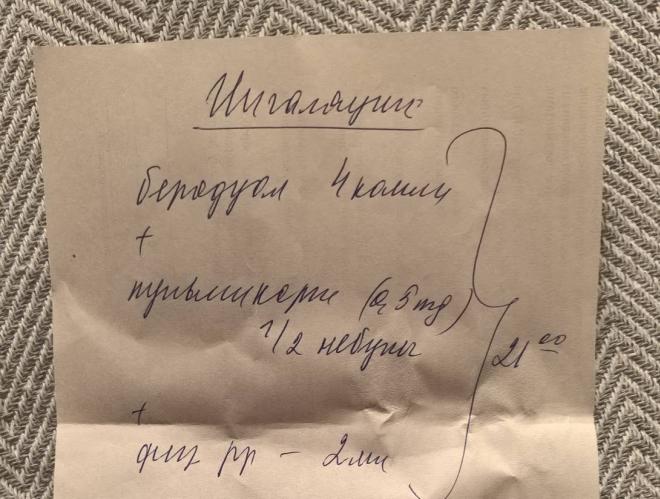 Ингаляции
беродуал 4 капли
+
пульмикорт (0,5mg)
1/2 небулы
21 00
+
физ рр - 2мл